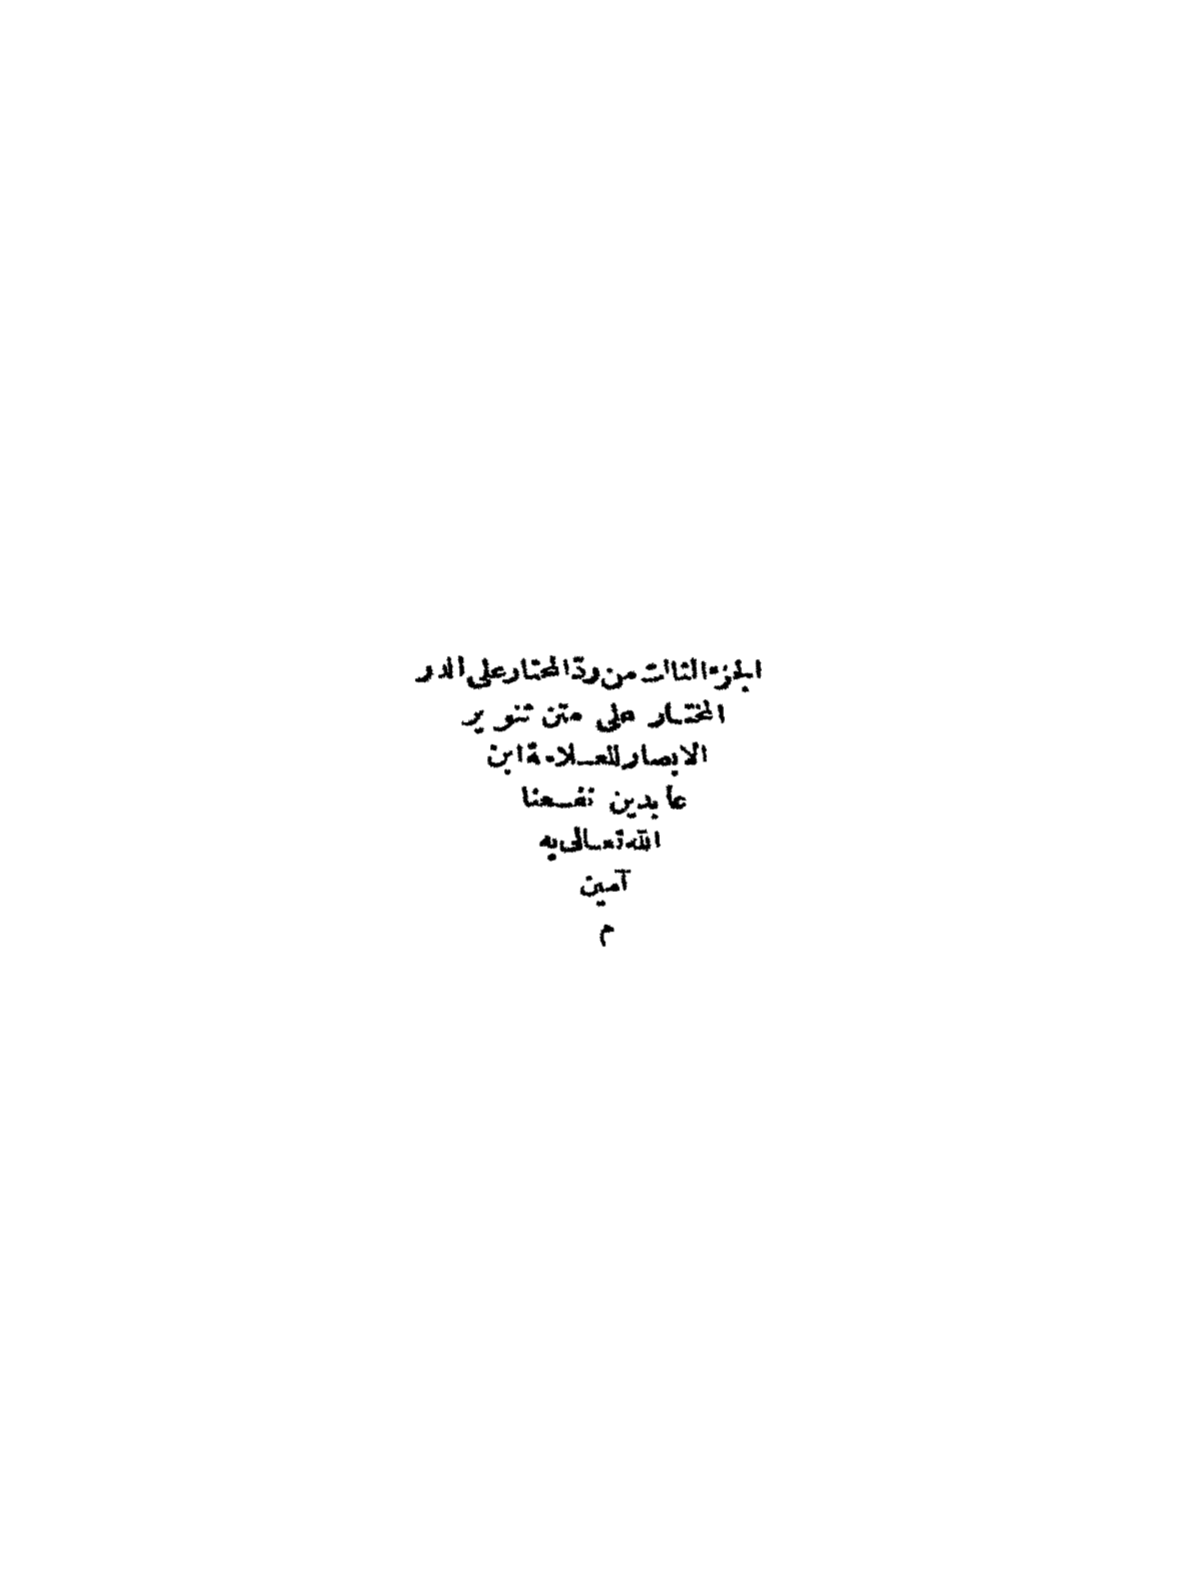 الجزء الثالث من ردّ المحتار على الدر
المختار على متن تنوير
الابصار للعلامة ابن
عابدين نفعنا
الله تعالى به
آمين
م